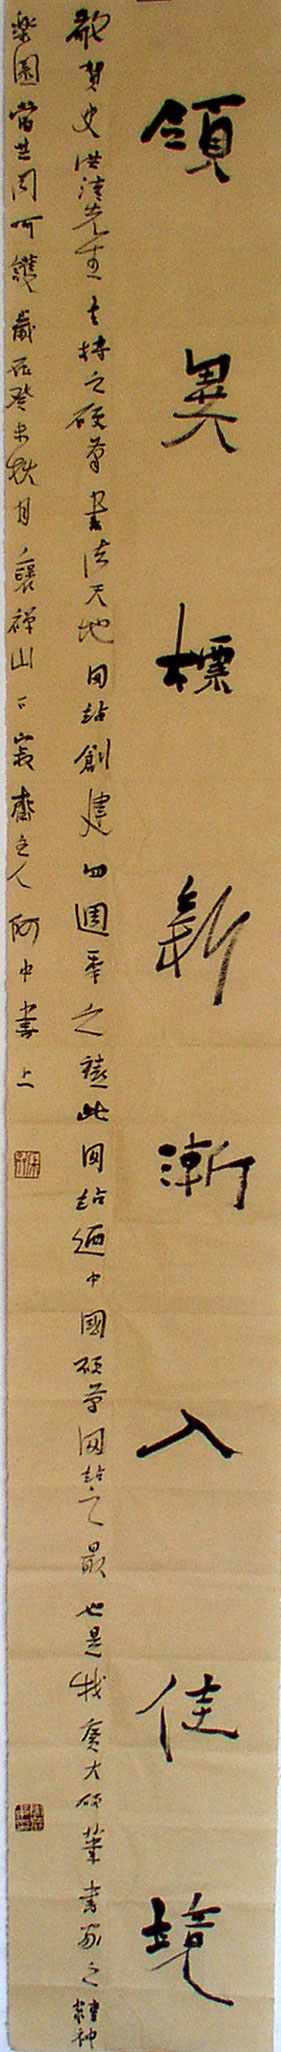 領異標新漸入佳境
敬賀史洪清先生主持之硬筆書法天地网站創建四週年之禧此网站迺中國硬筆网站之最也是我廣大硬筆書家之精神
樂園當去同可讚歲在癸未秋月襄禪山下寂齋主人阿中書上